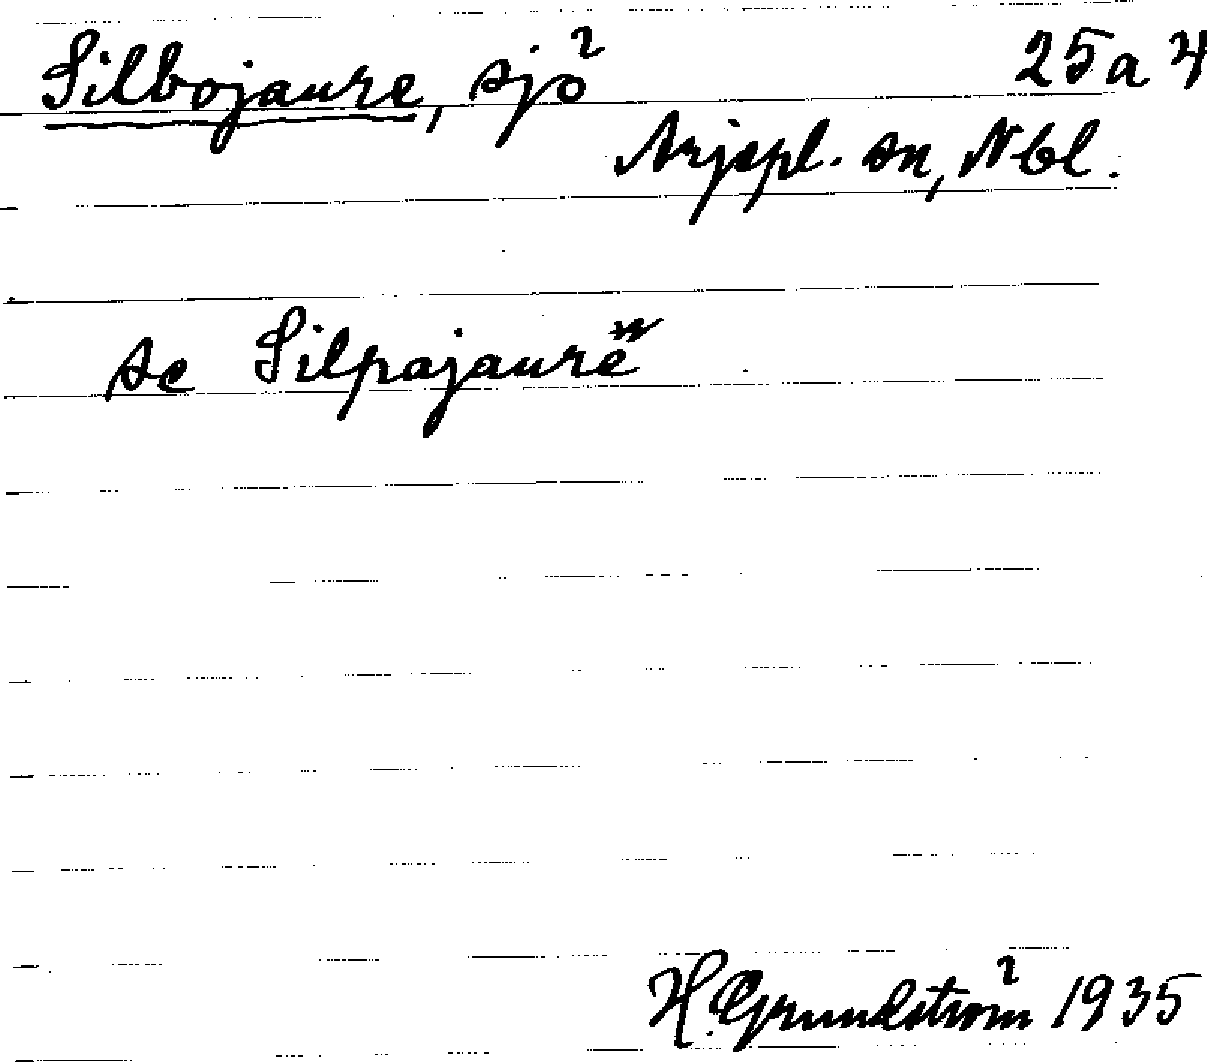 Silbojaure, sjö 25a4
Arjepl. sn, Nbl.
se Silpajaurē̆
H. Grundström 1935